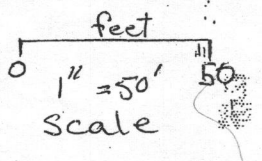 feet
0 50
1" = 50'
Scale